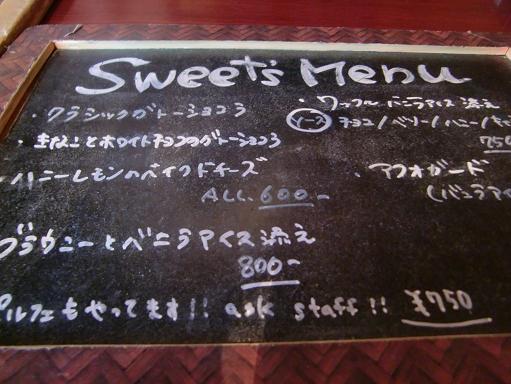 Sweet's Menu
・クラシックガトーショコラ
・きなことホワイトチョコのガトーショコラ
・ハニーレモンのベイクドチーズ
ALL 600.-
ブラウニーとバニラアイス添え
800-
パルフェもやってます!! ask staff!! ¥750
・ワッフル バニラアイス添え
ソース チョコ/ベリー/ハニー/キャ
750
・アフォガード
(バニラアイ